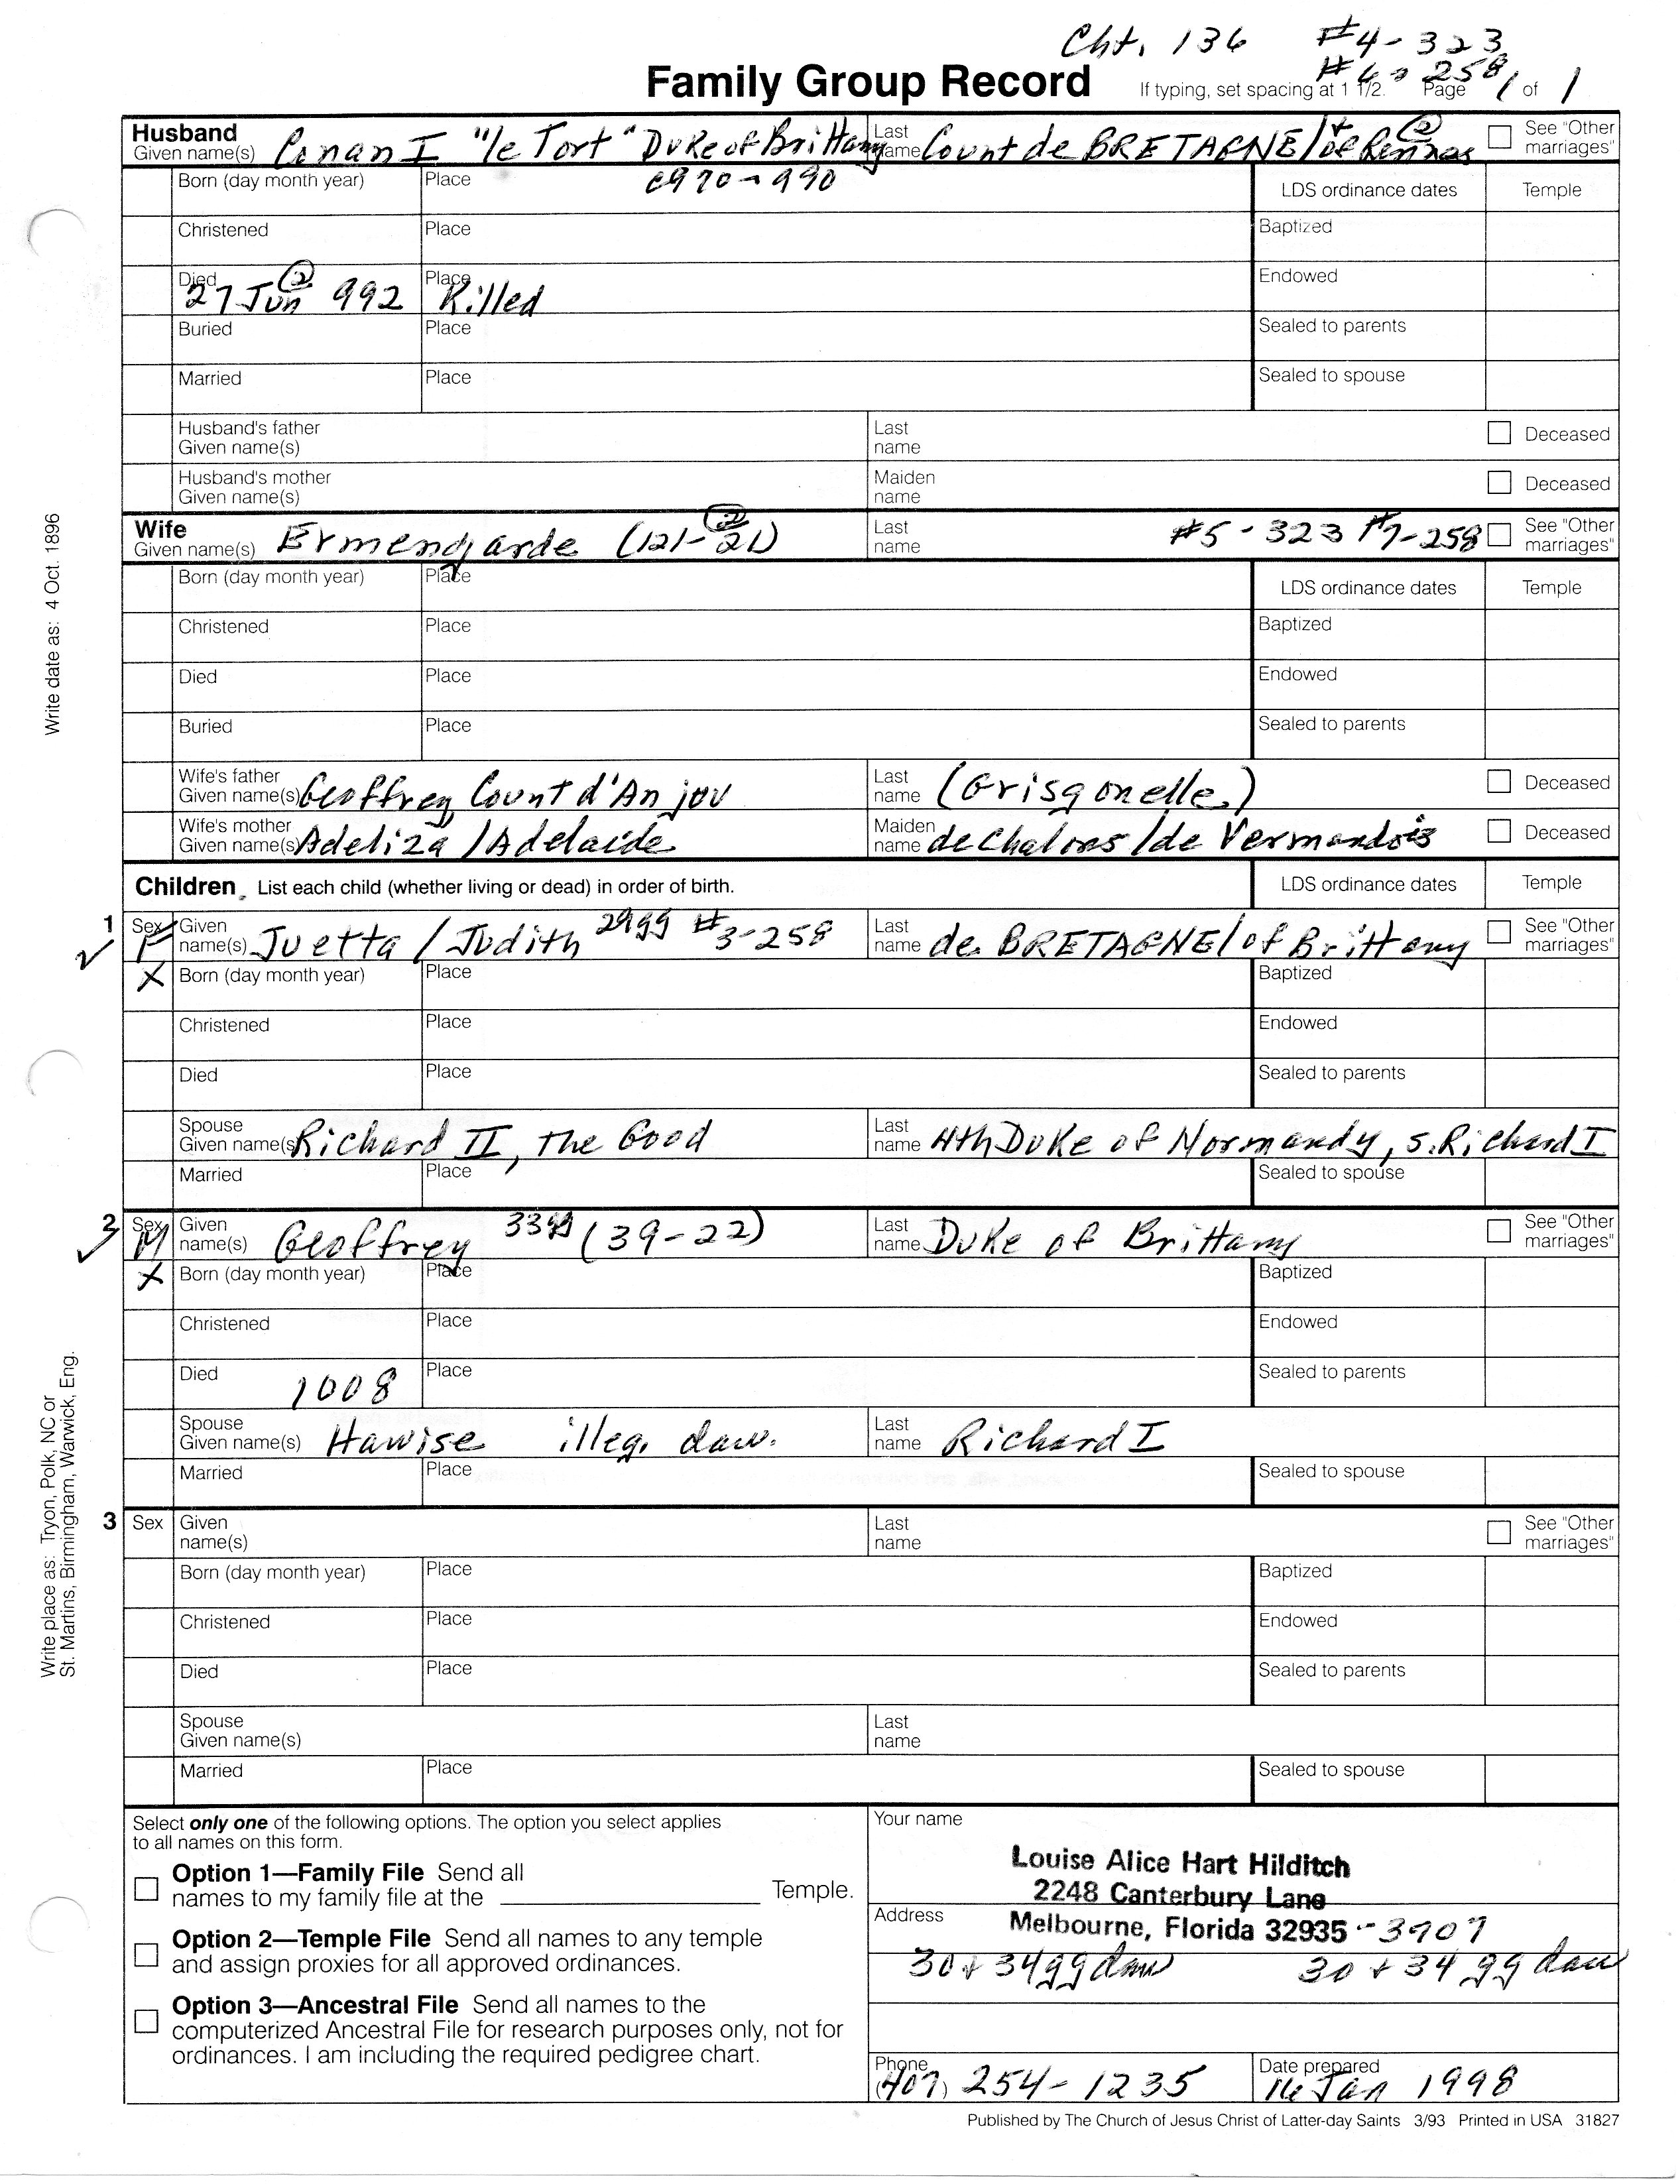 Cht. 136 #4-323
#6-258
Family Group Record If typing, set spacing at 1 1/2. Page 1 of 1
Husband
Given name(s) Conan I "le Tort" Duke of Brittany Last name Count de BRETAGNE/+ de Rennes (2) See "Other marriages"
Born (day month year) Place c970-990 LDS ordinance dates Temple
Christened Place Baptized
Died 27 Jun (2) 992 Place Killed Endowed
Buried Place Sealed to parents
Married Place Sealed to spouse
Husband's father
Given name(s) Last name Deceased
Husband's mother
Given name(s) Maiden name Deceased
Wife
Given name(s) Ermengarde (121-21) (2) Last name #5-323 #7-258 See "Other marriages"
Born (day month year) Place LDS ordinance dates Temple
Christened Place Baptized
Died Place Endowed
Buried Place Sealed to parents
Wife's father
Given name(s) Geoffrey Count d'Anjou Last name (Grisgonelle) Deceased
Wife's mother
Given name(s) Adeliza /Adelaide Maiden name de Chalons /de Vermandois Deceased
Children List each child (whether living or dead) in order of birth. LDS ordinance dates Temple
1 Sex F Given name(s) Juetta / Judith 29gg #3-258 Last name de BRETAGNE/of Brittany See "Other marriages"
X Born (day month year) Place Baptized
Christened Place Endowed
Died Place Sealed to parents
Spouse
Given name(s) Richard II, The Good Last name 4th Duke of Normandy, s. Richard I
Married Place Sealed to spouse
2 Sex M Given name(s) Geoffrey 33gg (39-22) Last name Duke of Brittany See "Other marriages"
X Born (day month year) Place Baptized
Christened Place Endowed
Died 1008 Place Sealed to parents
Spouse
Given name(s) Hawise illeg. dau. Last name Richard I
Married Place Sealed to spouse
3 Sex Given name(s) Last name See "Other marriages"
Born (day month year) Place Baptized
Christened Place Endowed
Died Place Sealed to parents
Spouse
Given name(s) Last name
Married Place Sealed to spouse
Write date as: 4 Oct. 1896
Write place as: Tryon, Polk, NC or
St. Martins, Birmingham, Warwick, Eng.
Select only one of the following options. The option you select applies
to all names on this form.
Option 1—Family File Send all
names to my family file at the Temple.
Option 2—Temple File Send all names to any temple
and assign proxies for all approved ordinances.
Option 3—Ancestral File Send all names to the
computerized Ancestral File for research purposes only, not for
ordinances. I am including the required pedigree chart.
Your name
Louise Alice Hart Hilditch
2248 Canterbury Lane
Address Melbourne, Florida 32935-3907
30+34gg dau 30+34 gg dau
Phone (407) 254-1235 Date prepared 16 Jan 1998
Published by The Church of Jesus Christ of Latter-day Saints 3/93 Printed in USA 31827